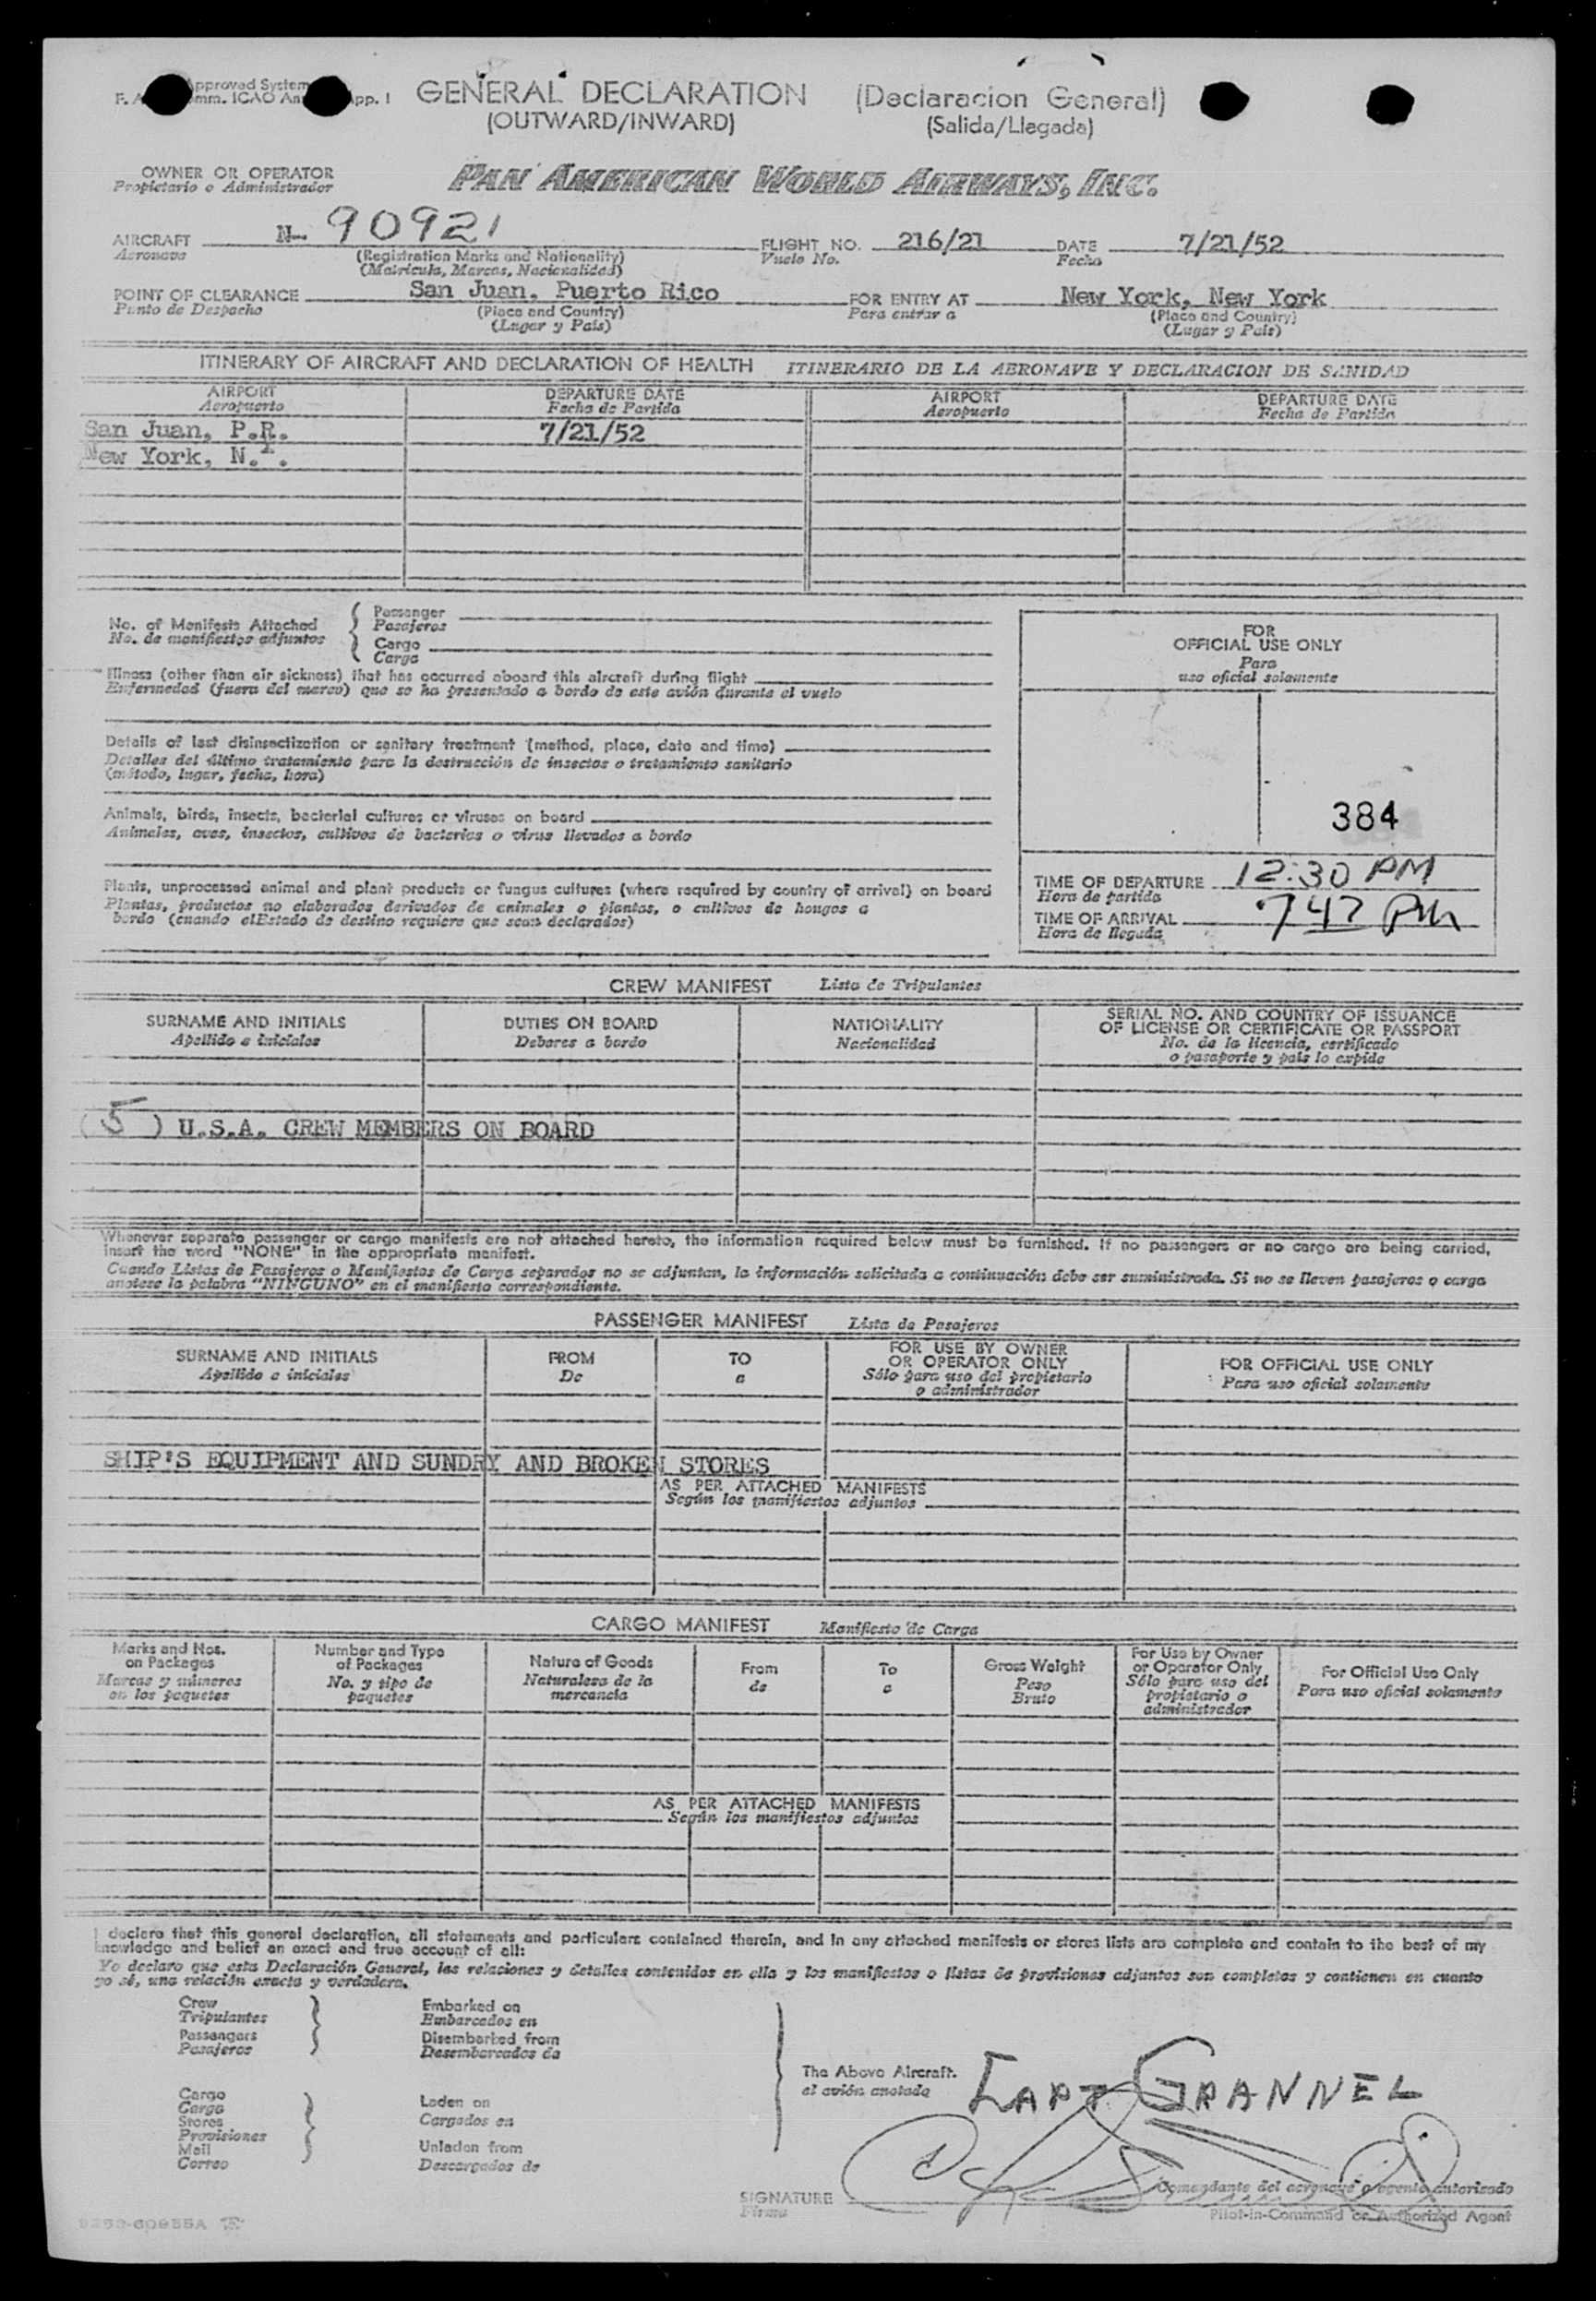 GENERAL DECLARATION (Declaracion General)
(OUTWARD/INWARD) (Salida/Llegada)
OWNER OR OPERATOR
Propietario o Administrador
PAN AMERICAN WORLD AIRWAYS, INC.
AIRCRAFT N- 90921 FLIGHT NO. 216/21 DATE 7/21/52
Aeronave (Registration Marks and Nationality) Vuelo No. Fecha
(Matricula, Marcas, Nacionalidad)
POINT OF CLEARANCE San Juan, Puerto Rico FOR ENTRY AT New York, New York
Punto de Despacho (Place and Country) Para entrar a (Place and Country)
(Lugar y Pais) (Lugar y Pais)
ITINERARY OF AIRCRAFT AND DECLARATION OF HEALTH ITINERARIO DE LA AERONAVE Y DECLARACION DE SANIDAD
AIRPORT DEPARTURE DATE AIRPORT DEPARTURE DATE
Aeropuerto Fecha de Partida Aeropuerto Fecha de Partida
San Juan, P.R. 7/21/52
New York, N.Y.
No. of Manifests Attached
No. de manifiestos adjuntos
Passenger
Pasajeros
Cargo
Carga
Illness (other than air sickness) that has occurred aboard this aircraft during flight
Enfermedad (fuera del mareo) que se ha presentado a bordo de este avión durante el vuelo
Details of last disinsectization or sanitary treatment (method, place, date and time)
Detalles del último tratamiento para la destrucción de insectos o tratamiento sanitario
(método, lugar, fecha, hora)
Animals, birds, insects, bacterial cultures or viruses on board
Animales, aves, insectos, cultivos de bacterias o virus llevados a bordo
Plants, unprocessed animal and plant products or fungus cultures (where required by country of arrival) on board
Plantas, productos no elaborados derivados de animales o plantas, o cultivos de hongos a
bordo (cuando elEstado de destino requiere que sean declarados)
FOR
OFFICIAL USE ONLY
Para
uso oficial solamente
384
TIME OF DEPARTURE 12:30 PM
Hora de partida
TIME OF ARRIVAL 7 47 PM
Hora de llegada
CREW MANIFEST Lista de Tripulantes
SURNAME AND INITIALS DUTIES ON BOARD NATIONALITY SERIAL NO. AND COUNTRY OF ISSUANCE
Apellido e iniciales Deberes a bordo Nacionalidad OF LICENSE OR CERTIFICATE OR PASSPORT
No. de la licencia, certificado
o pasaporte y pais lo expide
( 5 ) U.S.A. CREW MEMBERS ON BOARD
Whenever separate passenger or cargo manifests are not attached hereto, the information required below must be furnished. If no passengers or no cargo are being carried,
insert the word "NONE" in the appropriate manifest.
Cuando Listas de Pasajeros o Manifiestos de Carga separados no se adjuntan, la información solicitada a continuación debe ser suministrada. Si no se lleven pasajeros o carga
anotese la palabra "NINGUNO" en el manifiesto correspondiente.
PASSENGER MANIFEST Lista de Pasajeros
SURNAME AND INITIALS FROM TO FOR USE BY OWNER FOR OFFICIAL USE ONLY
Apellido e iniciales De a OR OPERATOR ONLY Para uso oficial solamente
Sólo para uso del propietario
o administrador
SHIP'S EQUIPMENT AND SUNDRY AND BROKEN STORES
AS PER ATTACHED MANIFESTS
Según los manifiestos adjuntos
CARGO MANIFEST Manifiesto de Carga
Marks and Nos. Number and Type Nature of Goods From To Gross Weight For Use by Owner For Official Use Only
on Packages of Packages Naturaleza de la de a Peso or Operator Only Para uso oficial solamente
Marcas y números No. y tipo de mercancia Bruto Sólo para uso del
en los paquetes paquetes propietario o
administrador
AS PER ATTACHED MANIFESTS
Según los manifiestos adjuntos
I declare that this general declaration, all statements and particulars contained therein, and in any attached manifests or stores lists are complete and contain to the best of my
knowledge and belief an exact and true account of all:
Yo declaro que esta Declaración General, las relaciones y detalles contenidos en ella y los manifiestos o listas de provisiones adjuntos son completos y contienen en cuanto
yo sé, una relación exacta y verdadera.
Crew Embarked on
Tripulantes Embarcados en
Passengers Disembarked from
Pasajeros Desembarcados de
The Above Aircraft.
el avión anotado
CAPT GRANNEL
Cargo Laden on
Carga Cargados en
Stores
Provisiones
Mail Unladen from
Correo Descargados de
SIGNATURE Comandante del aeronave o agente autorizado
Firma Pilot-in-Command or Authorized Agent